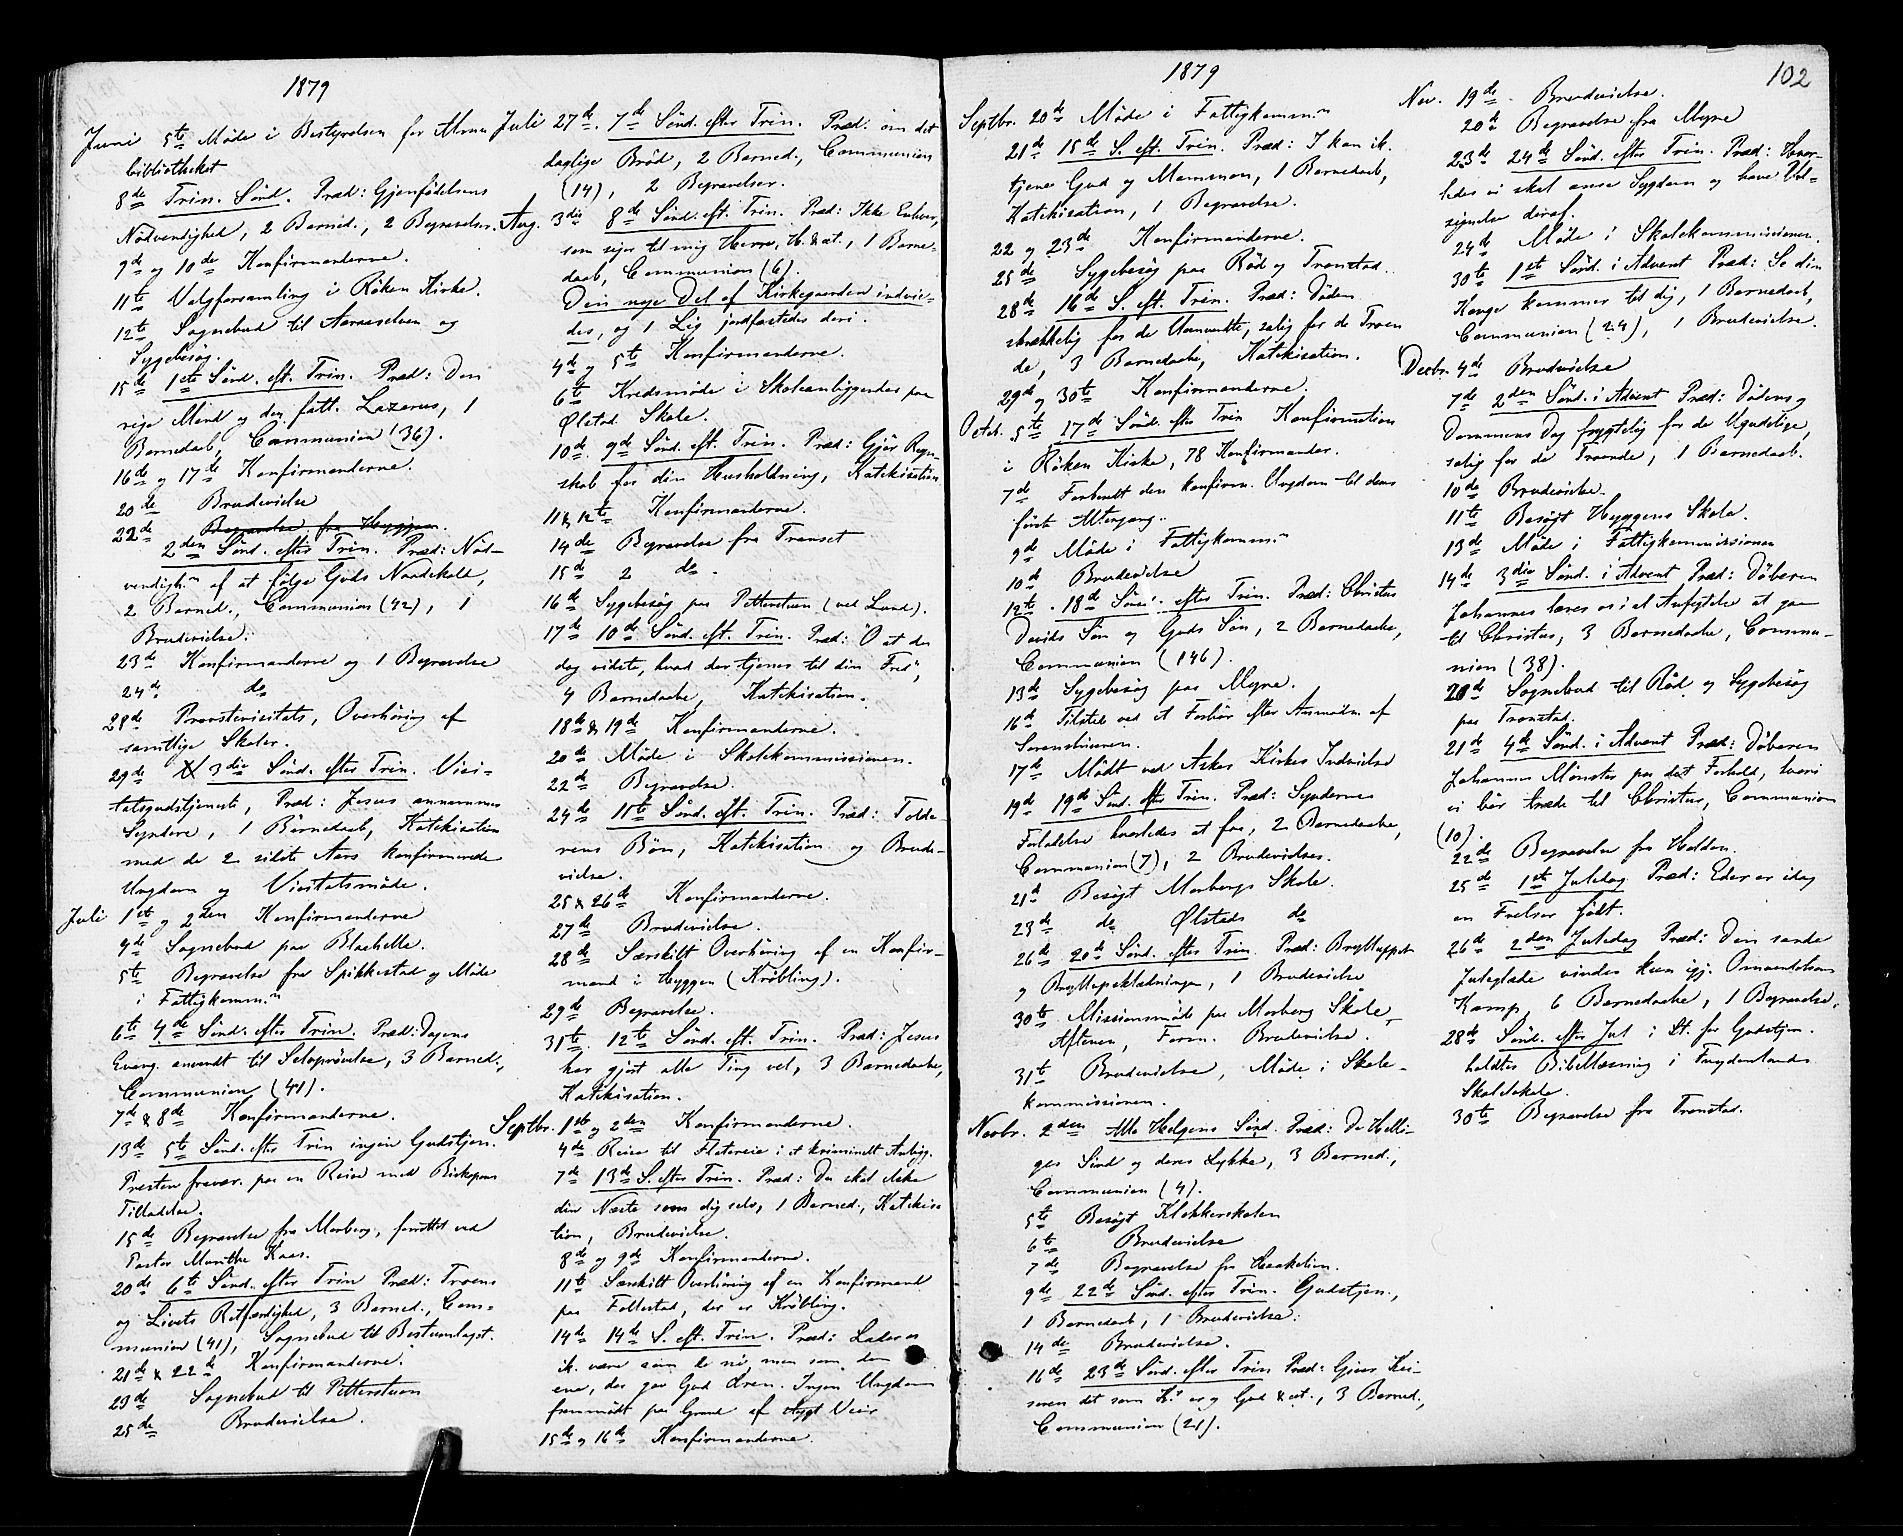 1879
Juni 5te Møde i Bestyrelsen for Almue
bibliotheket
8de Trin. Sønd. Præd: Gjenfødelsens
Nødvendighed, 2 Barned., 2 Begravelser.
9de og 10de Konfirmanderne.
11te Valgforsamling i Røken Kirke.
12te Sognebud til og
Sygebesøg.
15de 1ste Sønd. eft. Trin. Præd: Den
rige Mand og den fatt. Lazarus, 1
Barnedaab, Communion (36).
16de og 17de Konfirmanderne.
20de Brudevielse
22de Begravelse fra Hyggen.
2den Sønd. efter Trin. Præd: Nød-
vendigh.n af at følge Guds Naadekald,
2 Barned., Communion (42), 1
Brudevielse.
23de Konfirmanderne og 1 Begravelse
24de do
28de Provstevisitats, Overhøring af
samtlige Skoler.
29de 3die Sønd. efter Trin. Visi-
tatsgudstjeneste, Præd: Jesus annammer
Syndere, 1 Barnedaab, Katekisation
med de 2 sidste Aars konfirmerede
Ungdom og Visitatsmøde.
Juli 1ste og 2den Konfirmanderne
4de Sognebud paa Blaehella.
5te Begravelse fra Spikkestad og Møde
i Fattigkomm.n
6te 4de Sønd. efter Trin. Præd: Dagens
Evang. anvendt til Selvprøvelse, 3 Barned.,
Communion (41).
7de & 8de Konfirmanderne.
13de 5te Sønd. efter Trin ingen Gudstjen.
Presten fravær. paa en Reise med Biskopens
Tilladelse.
15de Begravelse fra Morberg, forrettet ved
Pastor Munthe Kaas.
20de 6te Sønd. efter Trin Præd: Troens
og Livets Retfærdighed, 3 Barned., Com-
munion (41), Sognebud til
21de & 22de Konfirmanderne.
23de Sognebud til Petterstuen
25de Brudevielse.
Juli 27de. 7de Sønd. efter Trin. Præd. om det
daglige Brød, 2 Barned., Communion
(14), 2 Begravelser.
Aug. 3die 8de Sønd. eft. Trin. Præd: Ikke Enhver,
som siger til mig Herre, H. &ct., 1 Barne-
daab, Communion (6).
Den nye Del af Kirkegaarden indvie-
des, og 1 Lig jordfæstedes deri.
4de og 5te Konfirmanderne.
6te Kredsmøde i Skoleanliggender paa
Ølstad Skole.
10de. 9de Sønd. eft. Trin. Præd: Gjør Regn-
skab for din Husholdning, Katekisation
11 & 12te Konfirmanderne.
14de Begravelse fra Transet
15de 2 do.
16de Sygebesøg paa Petterstuen (ved Lund).
17de 10de Sønd. eft. Trin. Præd: "O at du
dog vidste, hvad der tjener til din Fred",
4 Barnedaabe, Katekisation.
18de & 19de Konfirmanderne.
20de Møde i Skolekommissionen.
22de Begravelse.
24de 11te Sønd. eft. Trin. Præd: Tolde-
rens Bøn, Katekisation og Brude-
vielse.
25 & 26de Konfirmanderne.
27de Brudevielse.
28de Særskilt Overhøring af en Konfir-
mand i Hyggen (Krøbling).
29de Begravelse.
31te 12te Sønd. eft. Trin. Præd: Jesus
har gjort alle Ting vel, 3 Barnedaabe,
Katekisation.
Septbr. 1ste og 2den Konfirmanderne.
4de Reise til i et kriminelt Anligg.
7de 13de S. efter Trin. Præd: Du skal elske
din Næste som dig selv, 1 Barned., Katekisa
tion, Brudevielse.
8de og 9de Konfirmanderne.
11te Særskilt Overhøring af en Konfirmand
paa Follestad, der er Krøbling.
14de 14de S. eft. Trin. Præd: Lader os
ik. være som de ni, men som den
ene, der gav Gud Æren. Ingen Ungdom
fremmødt paa Grund af stygt Veir
15de og 16de Konfirmanderne.
1879
102
Septbr. 20de Møde i Fattigkomm.n
21de 15de S. eft. Trin. Præd: I kan ik.
tjene Gud og Mammon, 1 Barnedaab,
Katekisation, 1 Begravelse.
22 og 23de Konfirmanderne.
25de Sygebesøg paa Rød og Tronstad.
28de 16de S. eft. Trin. Præd: Døden
skrækkelig for de Uomvendte, salig for de Troen
de, 3 Barnedaabe, Katekisation.
29de og 30te Konfirmanderne.
Octob. 5te 17de Sønd. efter Trin Konfirmation
i Røken Kirke, 78 Konfirmander.
7de Forberedt den konfirm. Ungdom til dens
første Altergang.
9de Møde i Fattigkomm.n
10de Brudevielse
12te. 18de Sønd. efter Trin. Præd: Christus
Davids Søn og Guds Søn, 2 Barnedaabe,
Communion (146).
13de Sygebesøg paa Myre.
16de Tilstede ved et Forhør efter Anmodn. af
Sorenskriveren.
17de Mødt ved Askes Kirkes Indvielse
19de 19de Sønd. efter Trin. Præd: Syndernes
Forladelse hvorledes at faa, 2 Barnedaabe,
Communion (7), 2 Brudevielser.
21de Besøgt Morbergs Skole.
23de do Ølstads do
26de 20de Sønd. efter Trin. Præd: Brylluppet
og Bryllupsklædningen, 1 Brudevielse
30te Missionsmøde paa Morberg Skole,
Aftenen, Form. Brudevielse.
31te Brudevielse, Møde i Skole-
kommissionen.
Novbr. 2den Alle Helgens Sønd. Præd: De Helli-
ges Sind og deres Lykke, 3 Barned.,
Communion (4).
5te Besøgt Klokkerskolen
6te Brudevielse
7de Begravelse fra
9de 22de Sønd. efter Trin. Gudstjen.,
1 Barnedaab, 1 Brudevielse.
14de Brudevielse.
16de 23de Sønd. efter Trin Præd: Giver Kei-
seren det som K.s er og Gud &ct., 3 Barned.,
Communion (21).
Nov. 19de Brudevielse.
20de Begravelse fra Myre
23de 24de Sønd. efter Trin. Præd: Hvor-
ledes vi skal anse Sygdom og have Vel-
signelse deraf.
24de Møde i Skolekommissionen.
30te 1ste Sønd. i Advent Præd: Se din
Konge kommer til dig, 1 Barnedaab,
Communion (24), 1 Brudevielse.
Decbr. 4de Brudevielse
7de 2den Sønd. i Advent Præd: Dødens og
Dommens Dag frygtelig for de Ugudelige,
salig for de Troende, 1 Barnedaab.
10de Brudevielse.
11te Besøgt Hyggens Skole.
13de Møde i Fattigkommissionen
14de 3die Sønd. i Advent Præd: Døberen
Johannes lærer os i al Anfegtelse at gaa
til Christus, 3 Barnedaabe, Commu-
nion (38).
20de Sognebud til Rød og Sygebesøg
paa Tronstad.
21de 4de Sønd. i Advent Præd: Døberen
Johannes Mønster paa det Forhold, hvori
vi bør træde til Christus, Communion
(10).
22de Begravelse fra
25de 1ste Juledag Præd: Eder er idag
en Frelser født.
26de 2den Juledag Præd: Den sande
Juleglæde vindes kun igj. Omvendelsens
Kamp, 6 Barnedaabe, 1 Begravelse.
28de Sønd. efter Jul i St. for Gudstjen.
holdtes Bibellæsning i
Skolelokale.
30te Begravelse fra Tronstad.